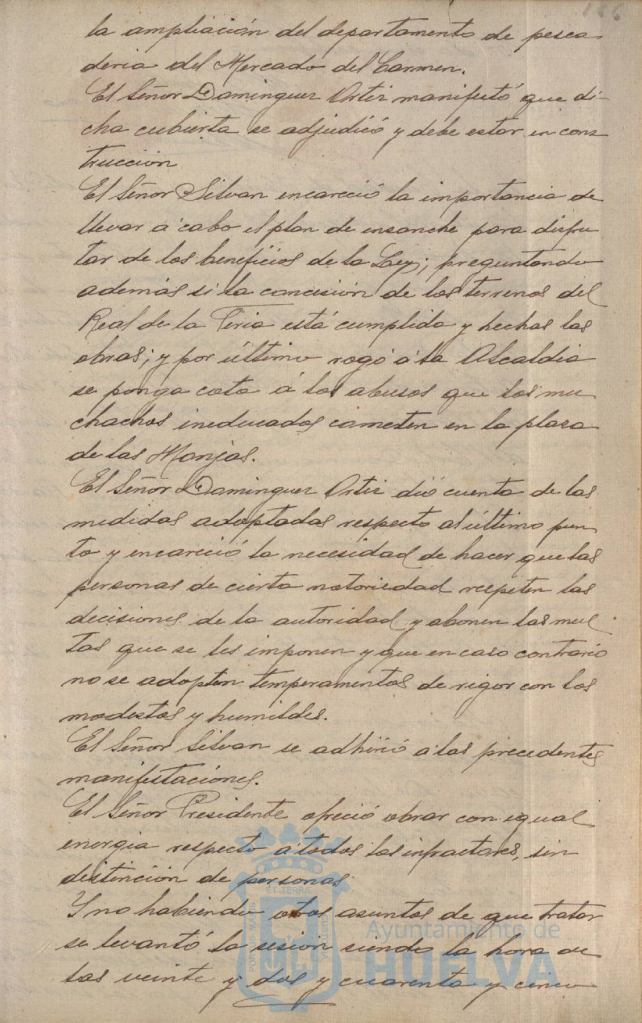 186
la ampliación del departamento de pesca
deria del Mercado del Carmen.
El Señor Dominguez Ortiz manifestó que di-
cha cubierta se adjudicó y debe estar en cons
trucción
El Señor Silvan encareció la importancia de
llevar a cabo el plan de ensanche para disfru
tar de los beneficios de la Ley; preguntando
además si la concesión de los terrenos del
Real de la Feria está cumplida y hechas las
obras; y por último rogó á la Alcaldia
se ponga coto á los abusos que los mu
chachos ineducados cometen en la plaza
de las Monjas.
El Señor Dominguez Ortiz dió cuenta de las
medidas adoptadas respecto al último pun
to y encareció la necesidad de hacer que las
personas de cierta notoriedad respeten las
decisiones de la autoridad y abonen las mul
tas que se les imponen y que en caso contrario
no se adopten temperamentos de rigor con los
modestos y humildes.
El Señor Silvan se adhirió a las precedentes
manifestaciones.
El Señor Presidente ofreció obrar con igual
energia respecto a todos los infractores, sin
distinción de personas
Y no habiendo otros asuntos de que tratar
se levantó la sesión siendo la hora de
las veinte y dos y cuarenta y cinco
Ayuntamiento de
HUELVA